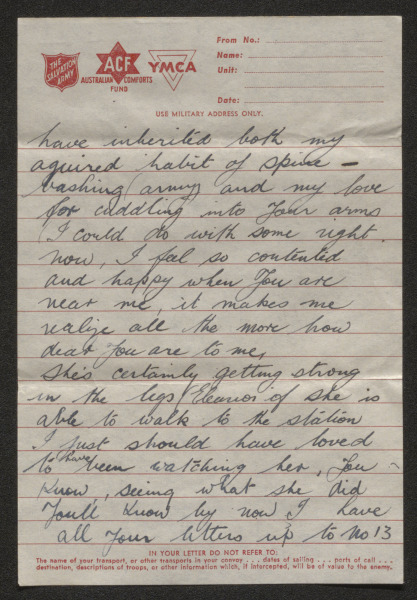 THE SALVATION ARMY
ACF
AUSTRALIAN COMFORTS FUND
YMCA
From No.:
Name:
Unit:
Date:
USE MILITARY ADDRESS ONLY.
have inherited both my
aquired habit of spine –
bashing (army) and my love
for cuddling into Your arms
(I could do with some right
now, I feel so contented
and happy when You are
near me, it makes me
realize all the more how
dear You are to me,
She's certainly getting strong
in the legs Eleanor if she is
able to walk to the station
I just should have loved
to have been watching her, You
Know, seeing what she did
You'll Know by now I have
all Your letters up to No 13
IN YOUR LETTER DO NOT REFER TO:
The name of your transport, or other transports in your convoy . . . dates of sailing . . . ports of call . . .
destination, descriptions of troops, or other information which, if intercepted, will be of value to the enemy.